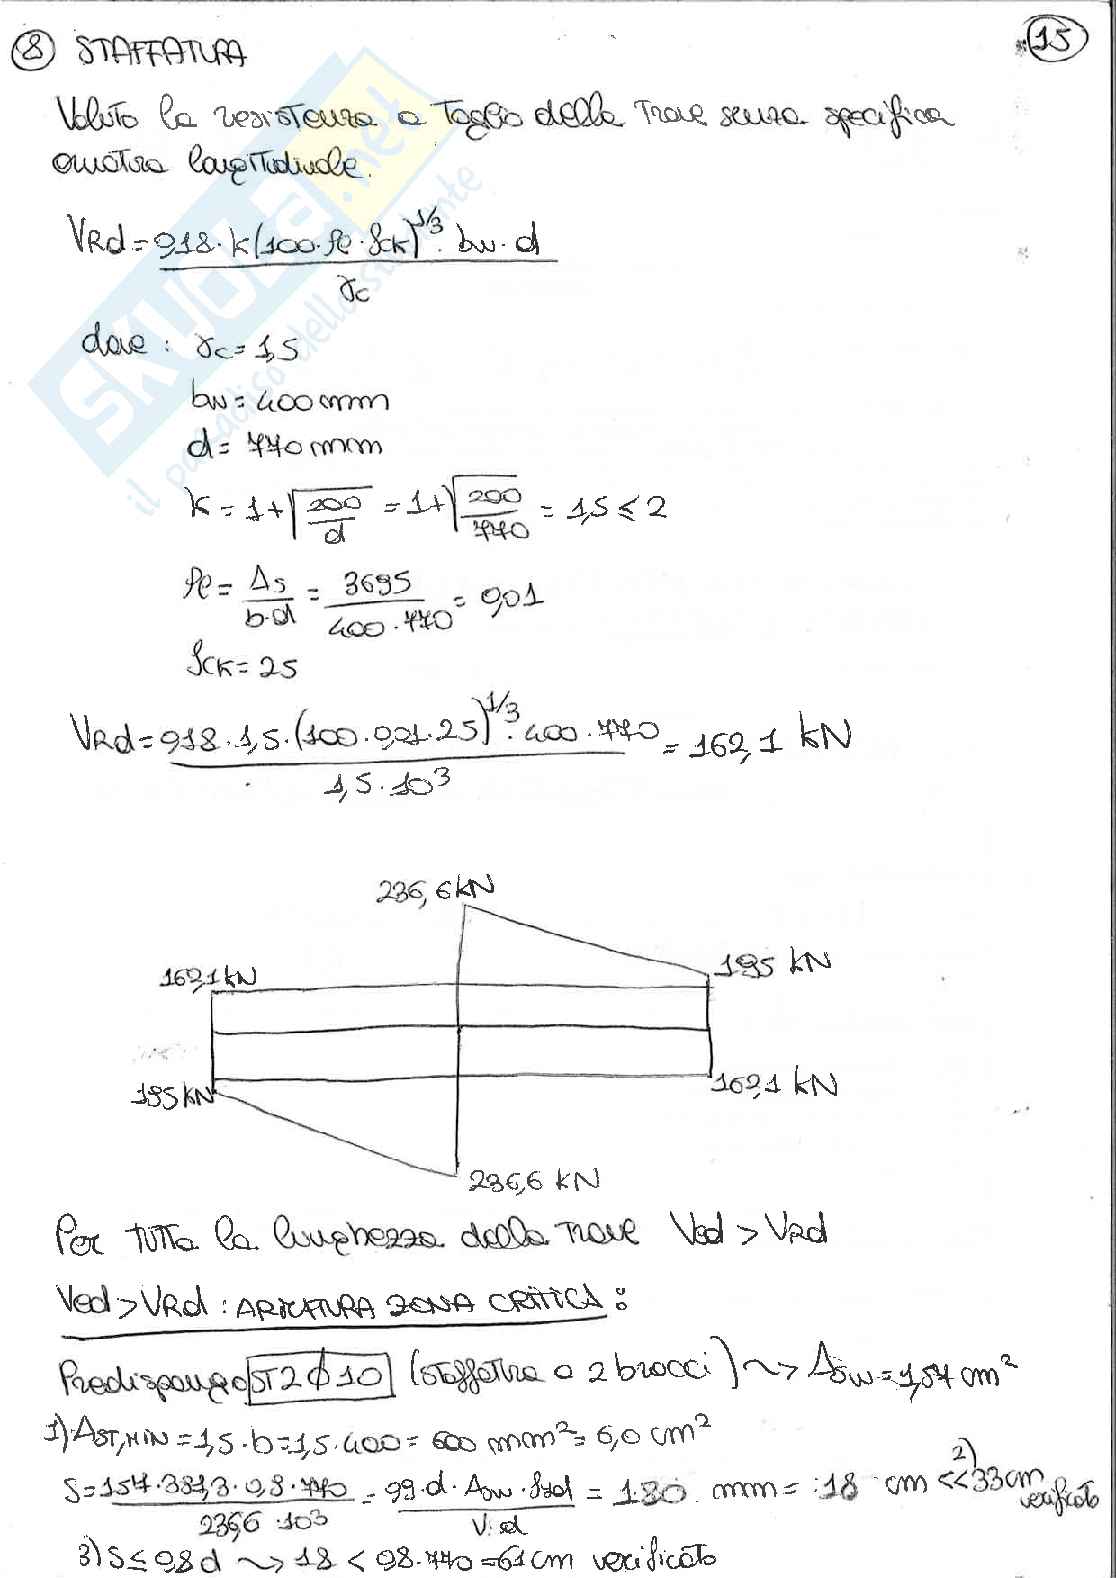 15
8 STAFFATURA
Valuto la resistenza a Taglio della Trave senza specifica
armatura longitudinale.
VRd = 0,18·k(100·ρe·fck)^1/3·bw·d
γc
dove: γc = 1,5
bw = 400 mm
d = 770 mm
k = 1+√200/d = 1+√200/770 = 1,5 ≤ 2
ρe = As/b·d = 3695/400·770 = 0,01
fck = 25
VRd = 0,18·1,5·(100·0,01·25)^1/3·400·770 = 162,1 kN
1,5·10³
236,6 kN
195 kN
162,1 kN
162,1 kN
195 kN
236,6 kN
Per TUTTA la lunghezza della Trave Ved > VRd
Ved > VRd : ARMATURA ZONA CRITICA :
Predispongo ST2Φ10 (staffatura a 2 bracci) ~> Asw = 1,57 cm²
1) AST,MIN = 1,5·b = 1,5·400 = 600 mm² = 6,0 cm²
S = 157·391,3·0,9·770/236,6·10³ = 0,9·d·Asw·fyd/Ved = 180 mm = 18 cm << 33 cm 2) verificato
3) S ≤ 0,8 d ~> 18 < 0,8·770 = 61 cm verificato
SKUOLA.net
il paradiso dello studente